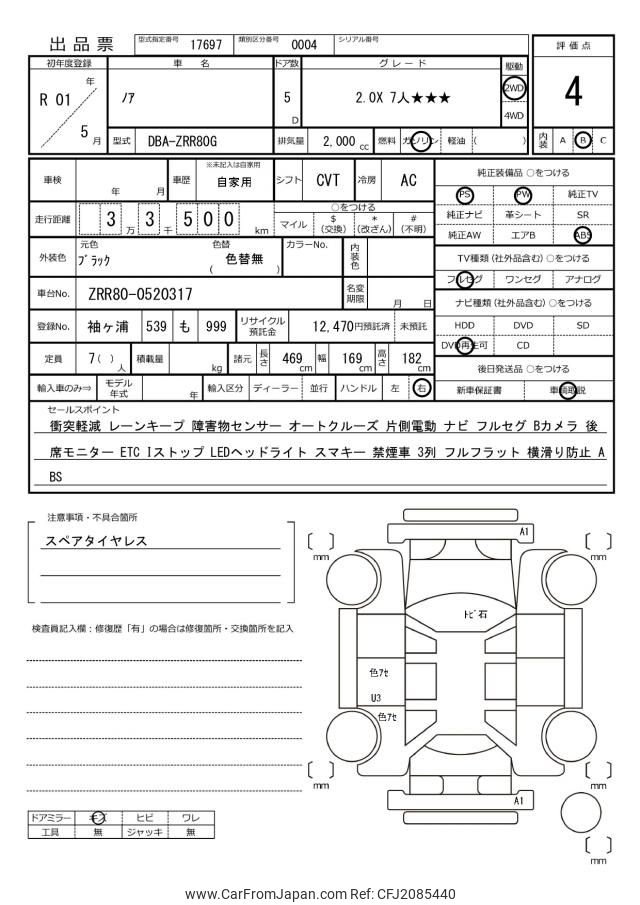 出品票 型式指定番号 17697 類別区分番号 0004 シリアル番号
評価点
4
内装 A B C
初年度登録 車 名 ドア数 グレード 駆動
R 01 年 5 月
ノア
5 D
2.0X 7人★★★
2WD
4WD
型式 DBA-ZRR80G 排気量 2,000 cc 燃料 ガソリン 軽油 ( )
車検 年 月 車歴 ※未記入は自家用 自家用 シフト CVT 冷房 AC
走行距離 3 万 3 千 5 0 0 km
○をつける
マイル $(交換) *(改ざん) #(不明)
外装色 元色 ブラック 色替 ( 色替無 ) カラーNo. 内装色
車台No. ZRR80-0520317 名変期限 月 日
登録No. 袖ヶ浦 539 も 999 リサイクル預託金 12,470円預託済 未預託
定員 7( ) 人 積載量 kg 諸元 長さ 469 cm 幅 169 cm 高さ 182 cm
輸入車のみ⇒ モデル年式 年 輸入区分 ディーラー 並行 ハンドル 左 右
純正装備品 ○をつける
PS PW 純正TV
純正ナビ 革シート SR
純正AW エアB ABS
TV種類 (社外品含む) ○をつける
フルセグ ワンセグ アナログ
ナビ種類 (社外品含む) ○をつける
HDD DVD SD
DVD再生可 CD
後日発送品 ○をつける
新車保証書 車輌取説
セールスポイント
衝突軽減 レーンキープ 障害物センサー オートクルーズ 片側電動 ナビ フルセグ Bカメラ 後
席モニター ETC Iストップ LEDヘッドライト スマキー 禁煙車 3列 フルフラット 横滑り防止 A
BS
注意事項・不具合箇所
スペアタイヤレス
検査員記入欄：修復歴「有」の場合は修復箇所・交換箇所を記入
ドアミラー キズ ヒビ ワレ
工具 無 ジャッキ 無
A1
mm
mm
トビ石
色アセ
U3
色アセ
mm
mm
A1
mm
www.CarFromJapan.com Ref: CFJ2085440